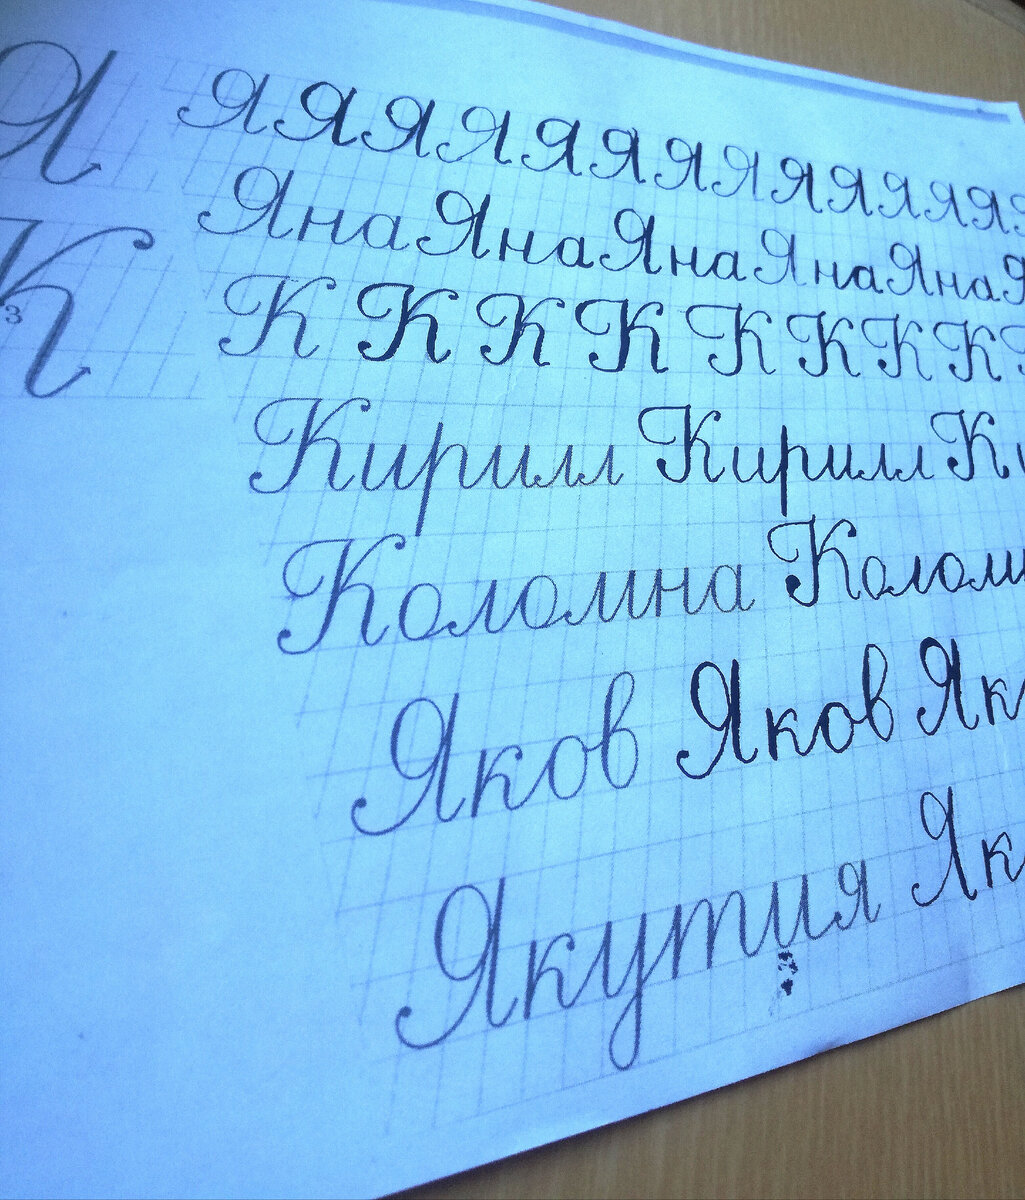 Я Я Я Я Я Я Я Я Я Я Я Я Я Я
Яна Яна Яна Яна Яна Я
К К К К К К К К К
3
Кирилл Кирилл Ки
Коломна Колом
Яков Яков Як
Якутия Як